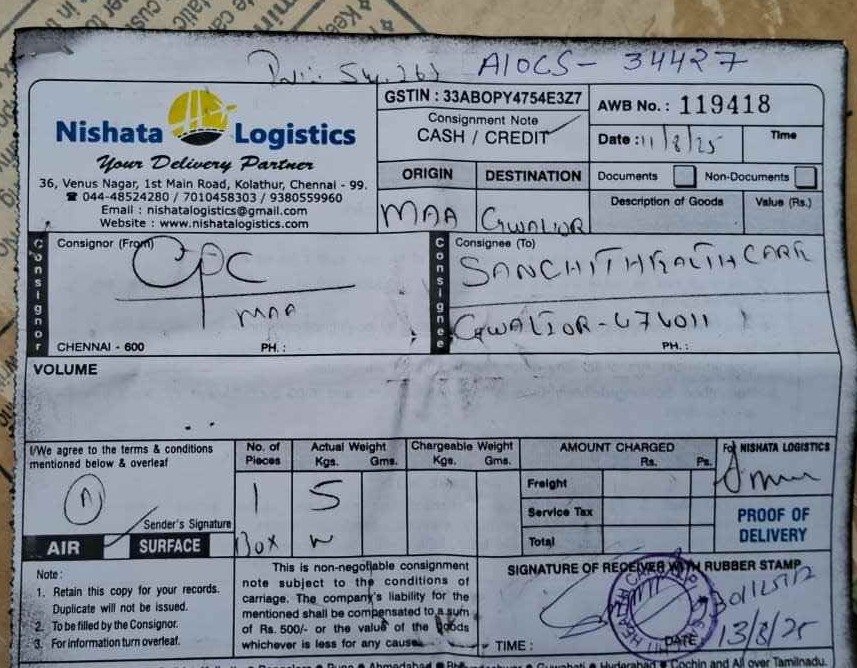 AIOCS- 34427
Nishata Logistics
Your Delivery Partner
36, Venus Nagar, 1st Main Road, Kolathur, Chennai - 99.
☎ 044-48524280 / 7010458303 / 9380559960
Email : nishatalogistics@gmail.com
Website : www.nishatalogistics.com
GSTIN : 33ABOPY4754E3Z7
Consignment Note
CASH / CREDIT
AWB No. : 119418
Date : 11/8/25 Time
ORIGIN DESTINATION
MAA GWALIOR
Documents Non-Documents
Description of Goods Value (Rs.)
Consignor
Consignor (From)
CPC
MAA
CHENNAI - 600 PH. :
Consignee
Consignee (To)
SANCHIT HEALTH CARE
GWALIOR-474011
PH. :
VOLUME
I/We agree to the terms & conditions
mentioned below & overleaf
Sender's Signature
AIR SURFACE
No. of Pieces Actual Weight Kgs. Gms. Chargeable Weight Kgs. Gms.
1 5
Box
AMOUNT CHARGED Rs. Ps.
Freight
Service Tax
Total
For NISHATA LOGISTICS
PROOF OF
DELIVERY
Note :
1. Retain this copy for your records.
Duplicate will not be issued.
2. To be filled by the Consignor.
3. For information turn overleaf.
This is non-negotiable consignment
note subject to the conditions of
carriage. The company's liability for the
mentioned shall be compensated to a sum
of Rs. 500/- or the value of the goods
whichever is less for any cause.
SIGNATURE OF RECEIVER WITH RUBBER STAMP
TIME : DATE 13/8/25
Ahmedabad
Guwahati • Hyderabad • Cochin and All over Tamilnadu.